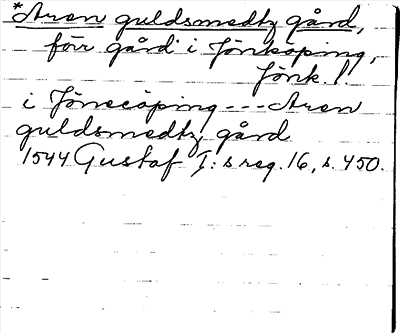 *Aren guldsmedtz gård,
förr gård i Jönköping,
Jönk. l.
i Jönecöping --- Aren
guldsmedtz gård
1544 Gustaf I:s reg. 16, s. 450.